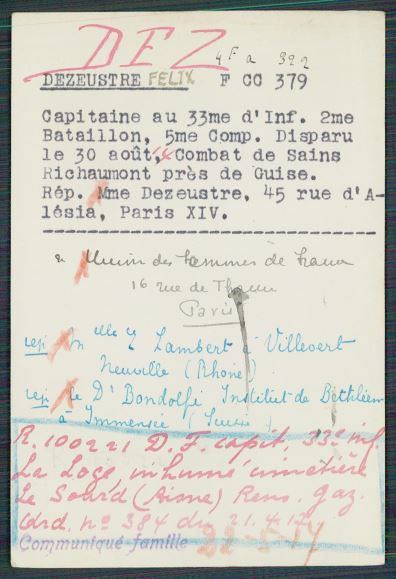 DEZ
4 F a 322
DEZEUSTRE FELIX F CC 379
Capitaine au 33me d'Inf. 2me
Bataillon, 5me Comp. Disparu
le 30 août, Combat de Sains
Richaumont près de Guise.
Rép. Mme Dezeustre, 45 rue d'A-
lésia, Paris XIV.
Union des femmes de France
16 rue de Thann
Paris
rép. Mlle Y Lambert à Villevert
Neuville (Rhône)
rép. le Dr Bondolfi Institut de Bethléem
à Immensee (Suisse)
R. 10021, D. F. capit. 33e inf.
La Loge, inhumé cimetière
Le Sourd (Aisne) Rens. gaz.
Ard. no 384 du 21.4.17
Communiqué famille